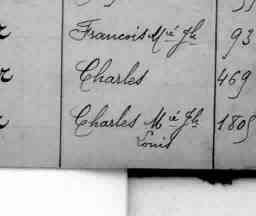 Francois Mie Jh 93
Charles 469
Charles Mie Jh 1805
Louis